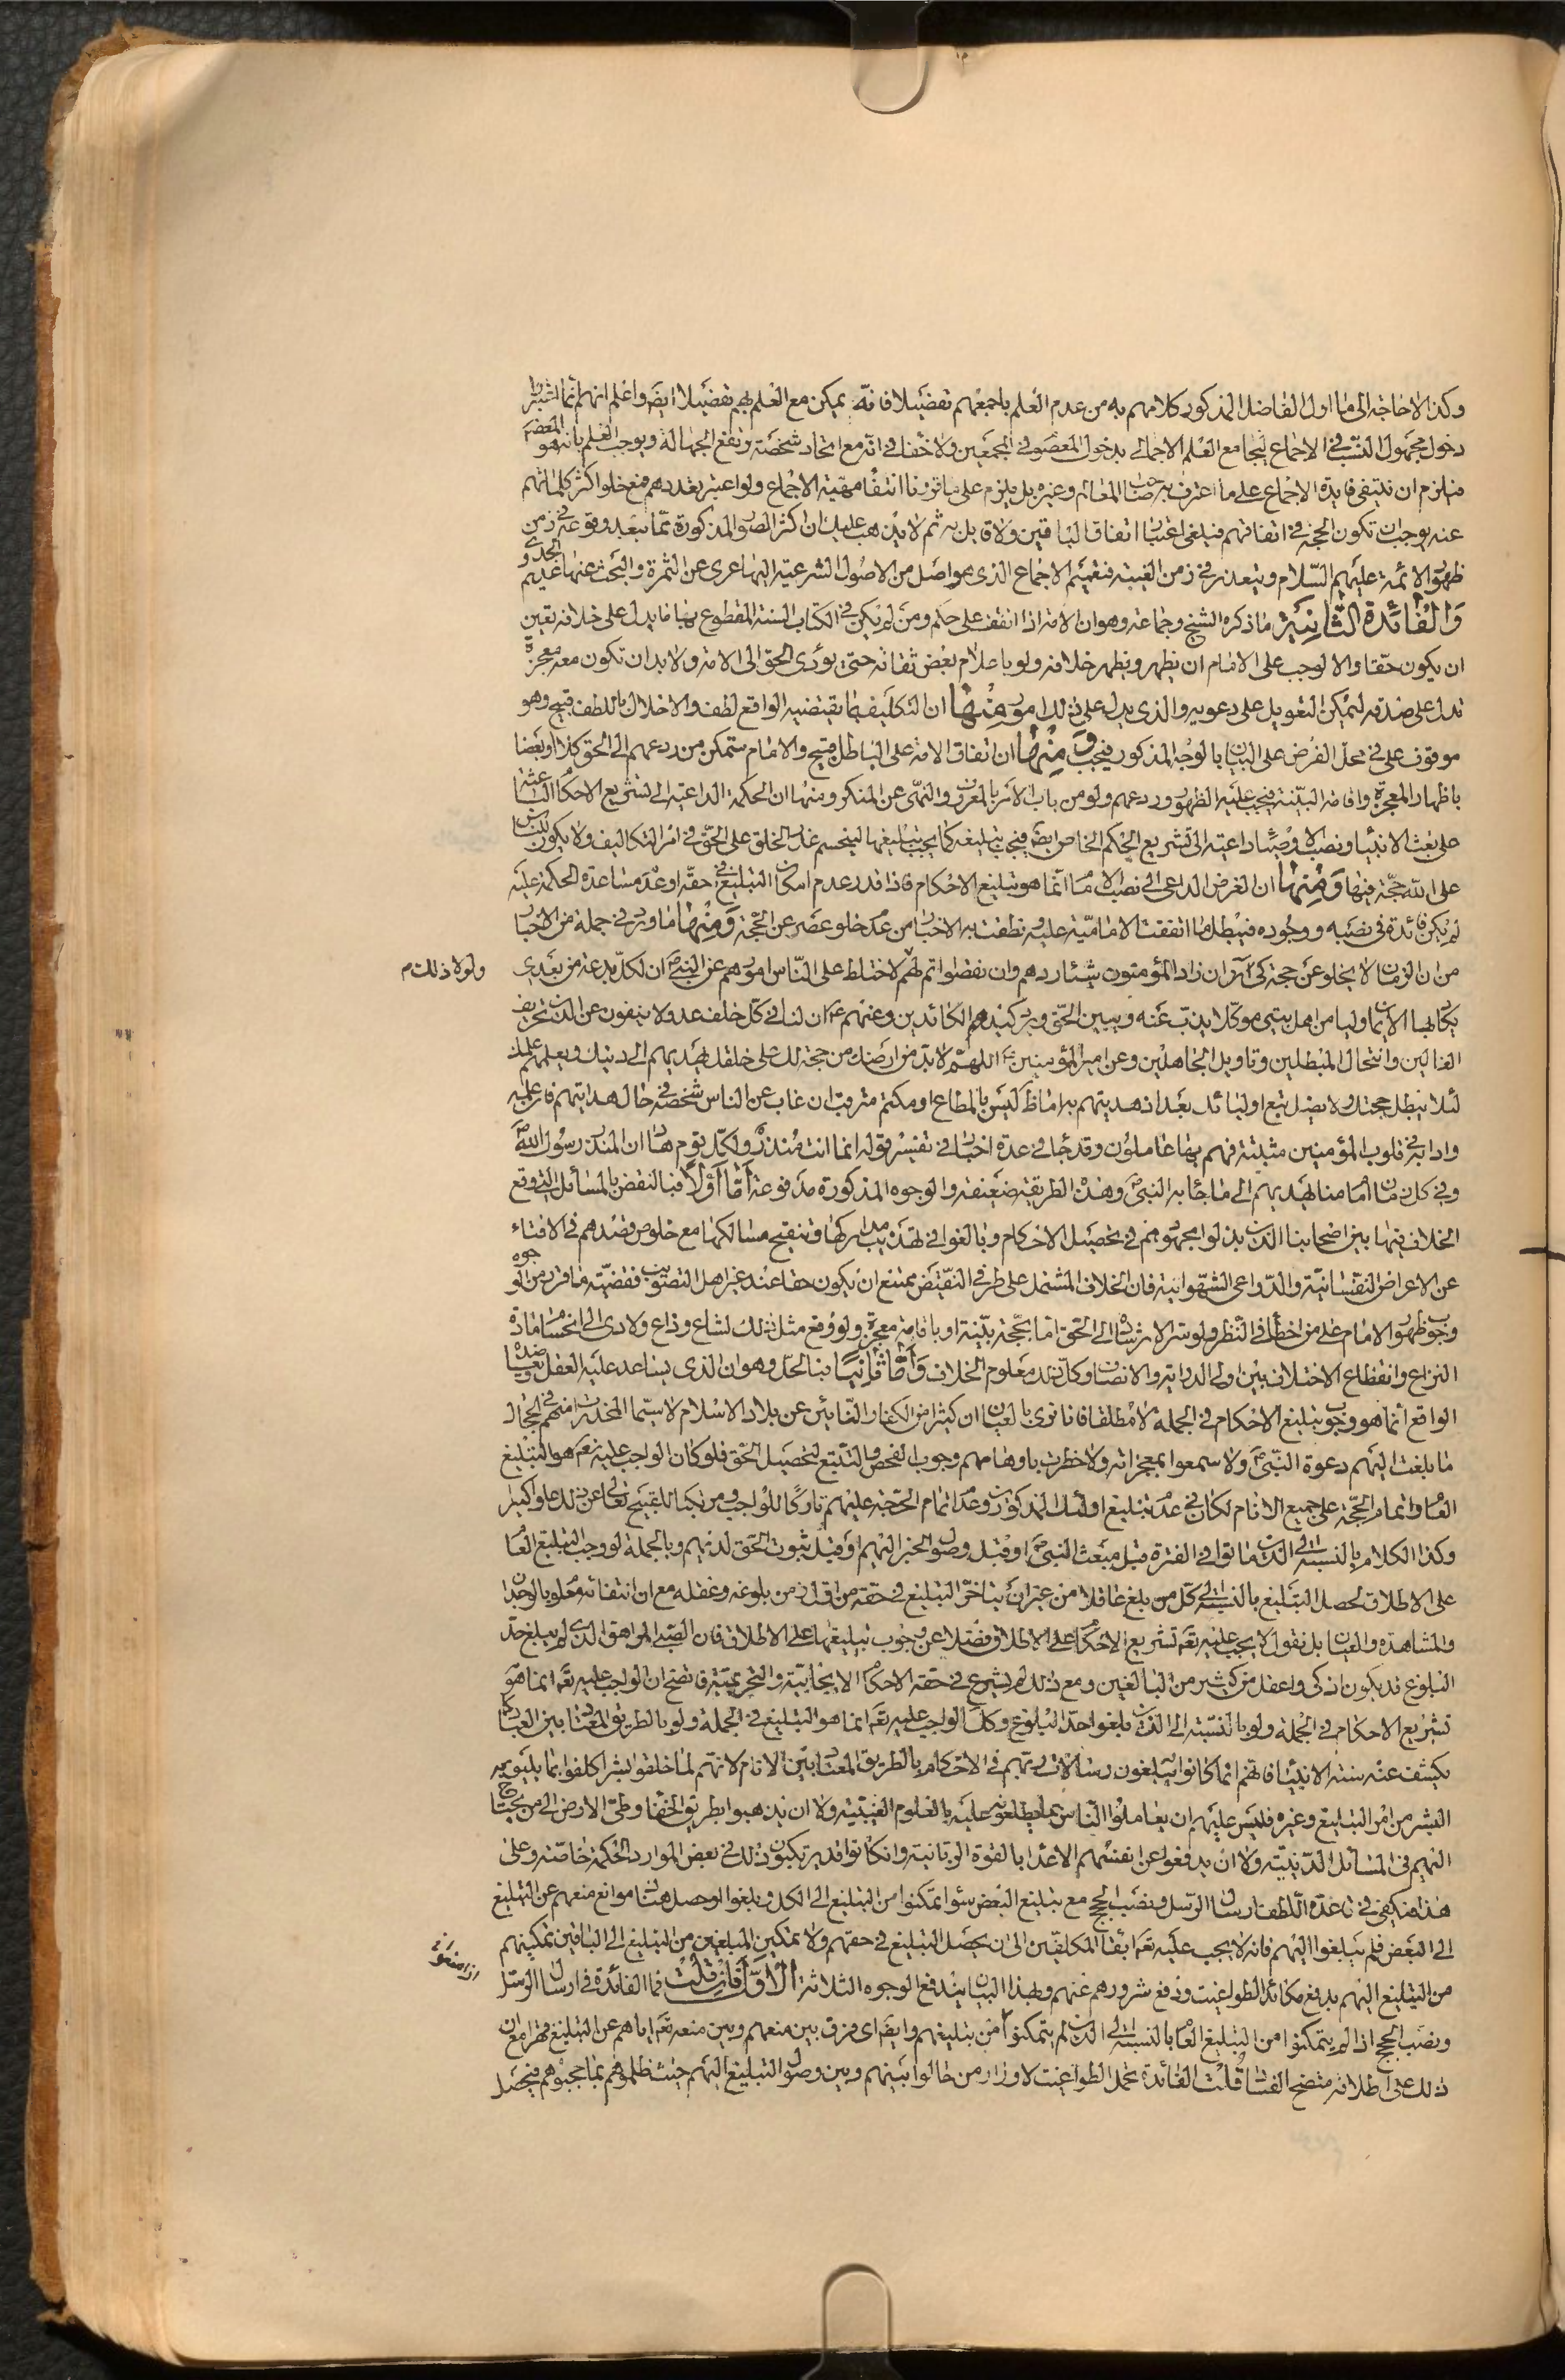 وكذا لا حاجة الى ما اول الفاضل المذكور كلامهم به من عدم العلم باجمعهم تفصيلا فانه يمكن مع العلم بهم تفصيلا ايضا واعلم انهم انما اشترطوا
دخول مجهول النسب في الاجماع ليجامع العلم الاجمالي بدخول المعصوم في المجمعين ولا خفا في انه مع اتحاد شخصه يرتفع الجهالة ويوجب العلم بانه هو المعصوم
فيلزم ان ينتفي فايدة الاجماع على ما اعترف به صاحب المعالم وغيره بل يلزم على ما قررنا انتفا مهية الاجماع ولو اعتبر تعددهم مع خلو اكثر كلماتهم
عنه يوجب ان تكون الحجة في اتفاقهم فيلغى اعتبار اتفاق الباقين ولا قابل به ثم لا يذهب عليك ان اكثر الصور المذكورة مما يبعد وقوعه في زمن
ظهور الائمة عليهم السلام ويتعذر في زمن الغيبة فتعميم الاجماع الذي هو اصل من الاصول الشرعية اليها عرى عن الثمرة والبحث عنها عديم الجدوى
والفائدة الثانية ما ذكره الشيخ وجماعة وهو ان الامة اذا اتفقت على حكم ومن لم يكن في الكتاب والسنة المقطوع بها ما يدل على خلافه تعين
ان يكون حقا والا لوجب على الامام ان يظهر ويظهر خلافه ولو باعلام بعض ثقاته حتى يؤدي الحق الى الامة ولا بد ان تكون معه معجزة
تدل على صدقه ليمكن التعويل على دعويه والذي يدل على ذلك امور منها ان التكليف بما يقتضيه الواقع لطف والاخلال باللطف قبيح وهو
موقوف على في محل الفرض على البيان بالوجه المذكور فيجب ومنها ان اتفاق الامة على الباطل قبيح والامام متمكن من ردعهم الى الحق كلا او بعضا
باظهار المعجزة واقامة البينة فيجب عليه الظهور وردعهم ولو من باب الامر بالمعروف والنهي عن المنكر ومنها ان الحكمة الداعية الى تشريع الاحكام الباعثة
على بعث الانبيا ونصب الاوصيا داعية الى تشريع الحكم الخاص ايضا فيجب تبليغه كما يجب تبليغها لينحسم عذر الخلق على الحق في امر التكاليف ولا يكون للناس
على الله حجة فيها ومنها ان الغرض الداعي الى نصب الامام انما هو تبليغ الاحكام فاذا قدر عدم امكان التبليغ في حقه او عدم مساعدة الحكمة عليه
لم يكن فائدة في نصبه ووجوده فيبطل ما اتفقت الامامية عليه ونطقت به الاخبار من عدم خلو عصر عن الحجة ومنها ما ورد في جملة من الاخبار
من ان الزمان لا يخلو عن حجة كى ان زاد المؤمنون شيئا ردهم وان نقصوا اتم لهم لاختلط على الناس امورهم عن النبي ص ان لكل بدعة من بعدي
ولولا ذلك م
يكاد بها الايمان وليا من اهل بيتي موكلا يذب عنه ويبين الحق ويرد كيد الكائدين وعنهم ع ان لنا في كل خلف عدولا ينفون عن الدين تحريف
الغالين وانتحال المبطلين وتاويل الجاهلين وعن امير المؤمنين ع اللهم لا بد من ارضك من حجة لك على خلقك يهديهم الى دينك ويعلمهم علمك
لئلا يبطل حجتك ولا يضل تبع اوليائك بعد اذ هديتهم به اما ظاهر ليس بالمطاع او مكتتم مترقب ان غاب عن الناس شخصه في حال هدايتهم فان علمه
وادابه في قلوب المؤمنين مثبتة فهم بها عاملون وقد جا في عدة اخبار في تفسير قوله انما انت منذر ولكل قوم هاد ان المنذر رسول الله ص
وفي كل زمان امام منا يهديهم الى ما جا به النبي ص وهذه الطريقة ضعيفة والوجوه المذكورة مدفوعة اما اولا فبالنقض بالمسائل التي وقع
الخلاف فيها بين اصحابنا الذين بذلوا مجهودهم في تحصيل الاحكام وبالغوا في تهذيب مداركها وتنقيح مسالكها مع خلوص قصدهم في الافتاء
عن الاعراض النفسانية والدواعي الشهوانية فان الخلاف المشتمل على طرفي النقيض يمتنع ان يكون حقا عند غير اهل التصويب فقضية ما قرر من الوجوه
وجوب ظهور الامام على من اخطأ في النظر ولو سترا لارشاده الى الحق اما بحجة بينة او باقامة معجزة ولو وقع مثل ذلك لشاع وذاع ولادى الى انحسام مادة
النزاع وانقطاع الاختلاف بين اولي الدراية والانصاف وكل ذلك معلوم الخلاف واما ثانيا فبالحل وهو ان الذي يساعد عليه العقل ويعاضده
الواقع انما هو وجوب تبليغ الاحكام في الجملة لا مطلقا فانا نرى بالعيان ان كثيرا من الكفار النائين عن بلاد الاسلام لاسيما المخدرات منهم في الحجال
ما بلغت اليهم دعوة النبي ص ولا سمعوا بمعجزاته ولا خطرت باوهامهم وجوب الفحص والتتبع لتحصيل الحق فلو كان الواجب عليه تعالى هو التبليغ
العام واتمام الحجة على جميع الانام لكان في عدم تبليغ اولئك المذكورين وعدم اتمام الحجة عليهم تاركا للواجب ومرتكبا للقبيح تعالى عن ذلك علوا كبيرا
وكذا الكلام بالنسبة الى الذين ماتوا في الفترة قبل مبعث النبي ص او قبل وصول الخبر اليهم او قبل ثبوت الحق لديهم وبالجملة لو وجب التبليغ العام
على الاطلاق لحصل التبليغ بالنسبة الى كل من بلغ عاقلا من غير ان يتاخر التبليغ في حقه من اول زمن بلوغه وعقله مع ان انتفائه معلوم بالوجدان
والمشاهدة والعيان بل نقول لا يجب عليه تعالى تشريع الاحكام على الاطلاق فضلا عن وجوب تبليغها على الاطلاق فان الصبي المراهق الذي لم يبلغ حد
البلوغ قد يكون اذكى واعقل من كثير من البالغين ومع ذلك لم يشرع في حقه الاحكام الايجابية والتحريمية فاتضح ان الواجب عليه تعالى انما هو
تشريع الاحكام في الجملة ولو بالنسبة الى الذين بلغوا حد البلوغ وكذا الواجب عليه تعالى انما هو التبليغ في الجملة ولو بالطريق المعتاد بين العباد كما
يكشف عنه سنة الانبيا فانهم انما كانوا يبلغون رسالات ربهم في الاحكام بالطريق المعتاد بين الانام لانهم لما خلقوا بشرا كلفوا بما يليق به
البشر من امر التبليغ وغيره فليس عليهم ان يعاملوا الناس بما يطلعون عليه بالعلوم الغيبية ولا ان يذهبوا بطريق الخفا وطي الارض الى من يحتاج
اليهم في المسائل الدينية ولا ان يدفعوا عن انفسهم الاعدا بالقوة الربانية وان كانوا قد يرتكبون ذلك في بعض الموارد لحكمة خاصة وعلى
هذا فيكفي في قاعدة اللطف ارسال الرسل ونصب الحجج مع تبليغ البعض سوا تمكنوا من التبليغ الى الكل وبلغوا او حصل هناك موانع منعهم عن التبليغ
الى البعض فلم يبلغوا اليهم فانه لا يجب عليه تعالى ابقا المكلفين الى ان يحصل التبليغ في حقهم ولا تمكين المبلغين من التبليغ الى الباقين تمكينهم
من التبليغ اليهم بدفع مكائد الطواغيت ودفع شرورهم عنهم وبهذا البيان يندفع الوجوه الثلاثة الاول فان قلت فما الفائدة في ارسال الرسل
ونصب الحجج اذا لم يتمكنوا من التبليغ العام بالنسبة الى الذين لم يتمكنوا من تبليغهم وايضا اي فرق بين منعهم وبين منعه تعالى اياهم عن التبليغ قهرا مع ان
ذلك على اطلاقه متضح الفساد قلت الفائدة تحمل الطواغيت لاوزار من حالوا بينهم وبين وصول التبليغ اليهم حيث ظلموهم بما حجبوهم فيحصل